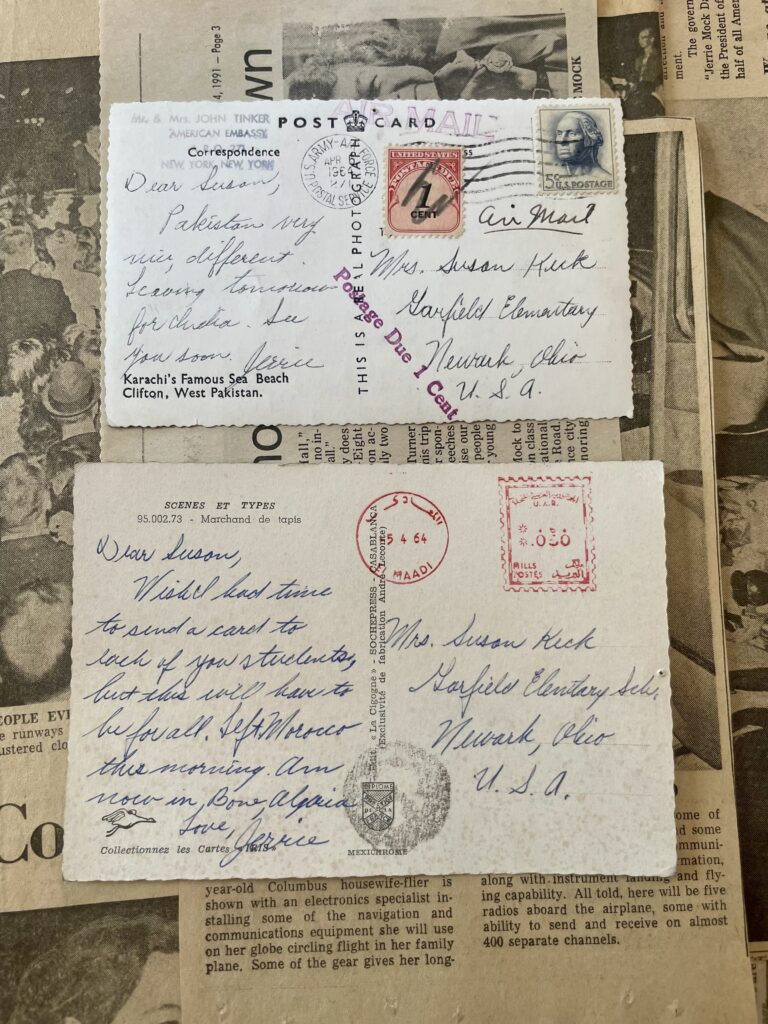 4, 1991 — Page 3
own
MOCK
The govern
ment.
"Jerrie Mock Da
the President of
half of all Amer
Mr. & Mrs. JOHN TINKER
AMERICAN EMBASSY
NEW YORK, NEW YORK
POST CARD
AIR MAIL
Correspondence
U.S. ARMY-AIR FORCE
POSTAL SERVICE
APR
1964
271
UNITED STATES
POSTAGE DUE
1
CENT
5c
U.S. POSTAGE
Air Mail
Dear Susan,
Pakistan very
nice, different.
Leaving tomorrow
for India. See
you soon. Jerrie
Karachi's Famous Sea Beach
Clifton, West Pakistan.
THIS IS A REAL PHOTOGRAPH
Postage Due 1 Cent
Mrs. Susan Keck
Garfield Elementary
Newark, Ohio
U. S. A.
SCENES ET TYPES
95.002.73 - Marchand de tapis
Dear Suson,
Wish I had time
to send a card to
each of you students,
but this will have to
be for all. Left Morocco
this morning. Am
now in Bone, Algeria
Love,
Jerrie
Collectionnez les Cartes «IRIS»
Edit. « La Cigogne » - SOCHEPRESS - CASABLANCA
(Exclusivité de fabrication André Leconte)
MEXICHROME
المعادى
5 4 64
EL MAADI
U.A.R.
MILLS
POSTES
البريد
Mrs. Suson Keck
Garfield Elementary Sch.
Newark, Ohio
U. S. A.
EOPLE EVE
e runways
ustered clo
Co
year-old Columbus housewife-flier is
shown with an electronics specialist in-
stalling some of the navigation and
communications equipment she will use
on her globe circling flight in her family
plane. Some of the gear gives her long-
ome of
d some
mmuni-
mation,
along with instrument landing and fly-
ing capability. All told, here will be five
radios aboard the airplane, some with
ability to send and receive on almost
400 separate channels.